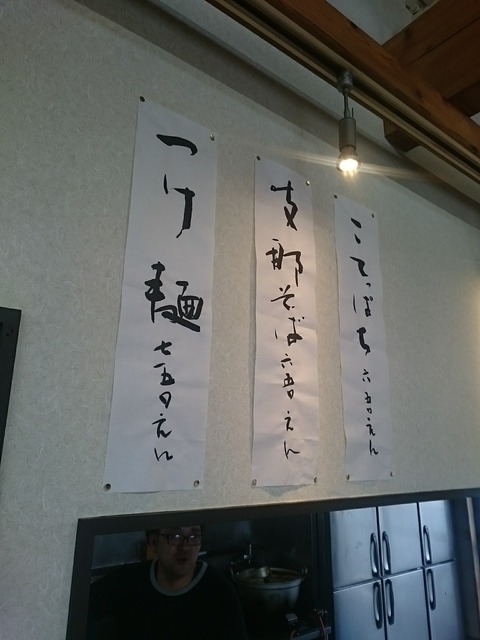 こてっぱち 六五〇えん
支那そば 六五〇えん
つけ麺 七五〇えん